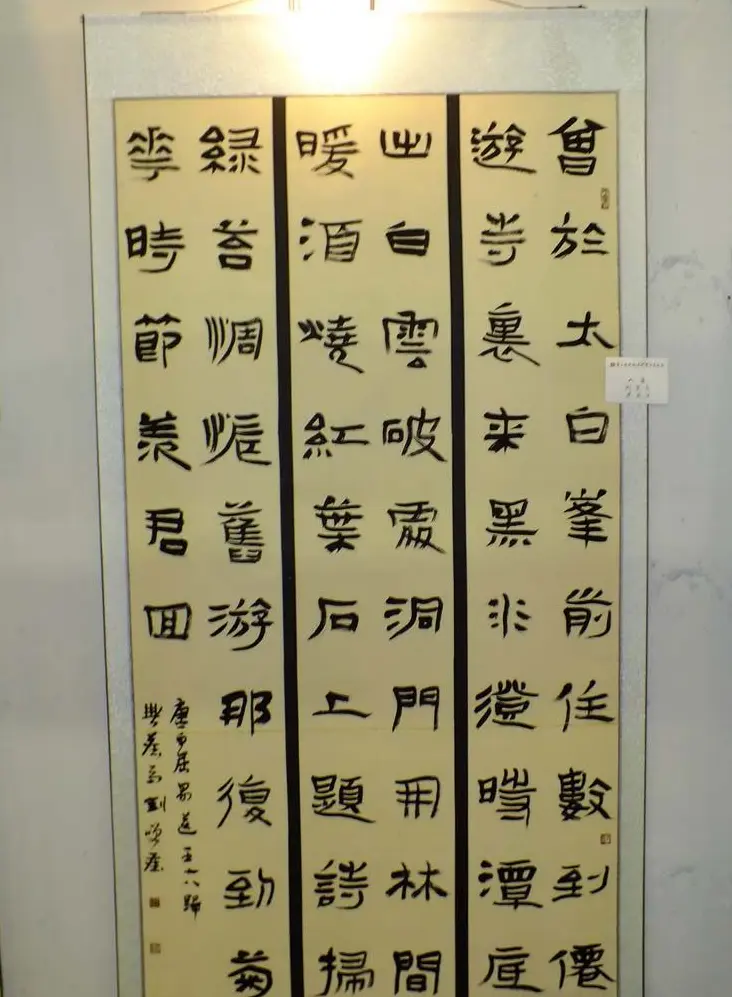 曾於太白峯前住數到僊
游寺裏來黑水澄時潭底
出白雲破處洞門開林間
暖酒燒紅葉石上題詩掃
緑苔惆悵舊游那復到菊
華時節羨君回
唐白居易送王十八歸
劉